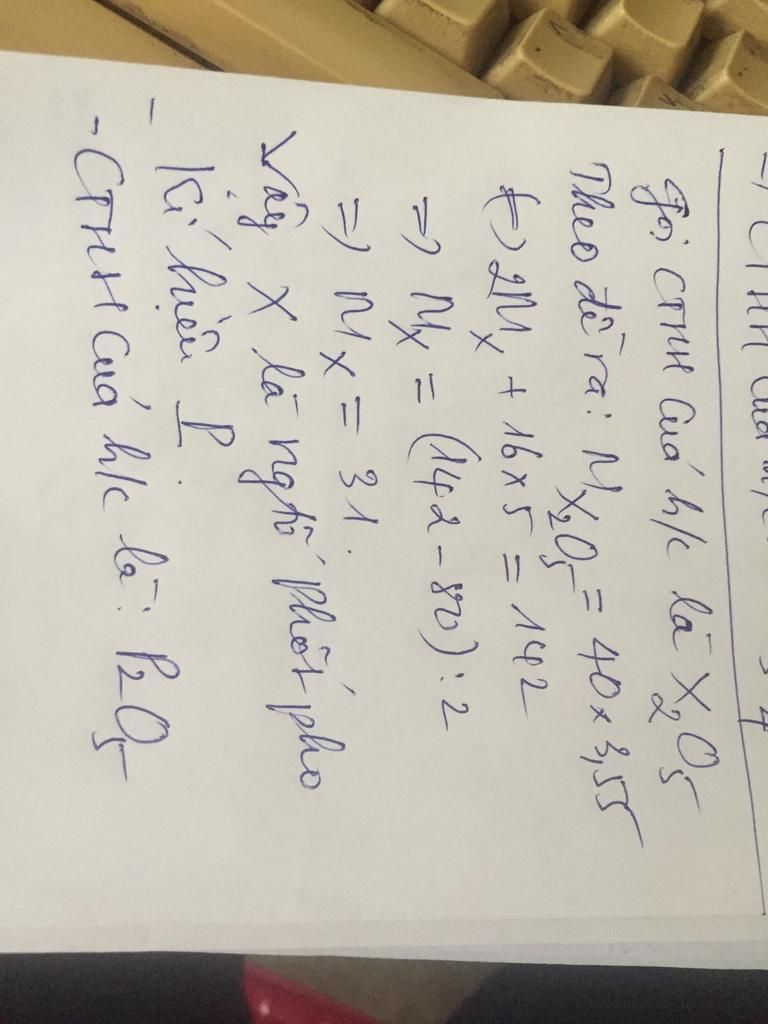 -) CTHH của h/c
3 4
Gọi CTHH cuả h/c là X₂O₅
Theo đề ra: M X₂O₅ = 40 x 3,55
(-) 2Mₓ + 16 x 5 = 142
=) Mₓ = (142 - 80) : 2
=) Mₓ = 31.
Vậy X là ngtố phốt pho
- Kí hiệu P.
- CTHH cuả h/c là: P₂O₅